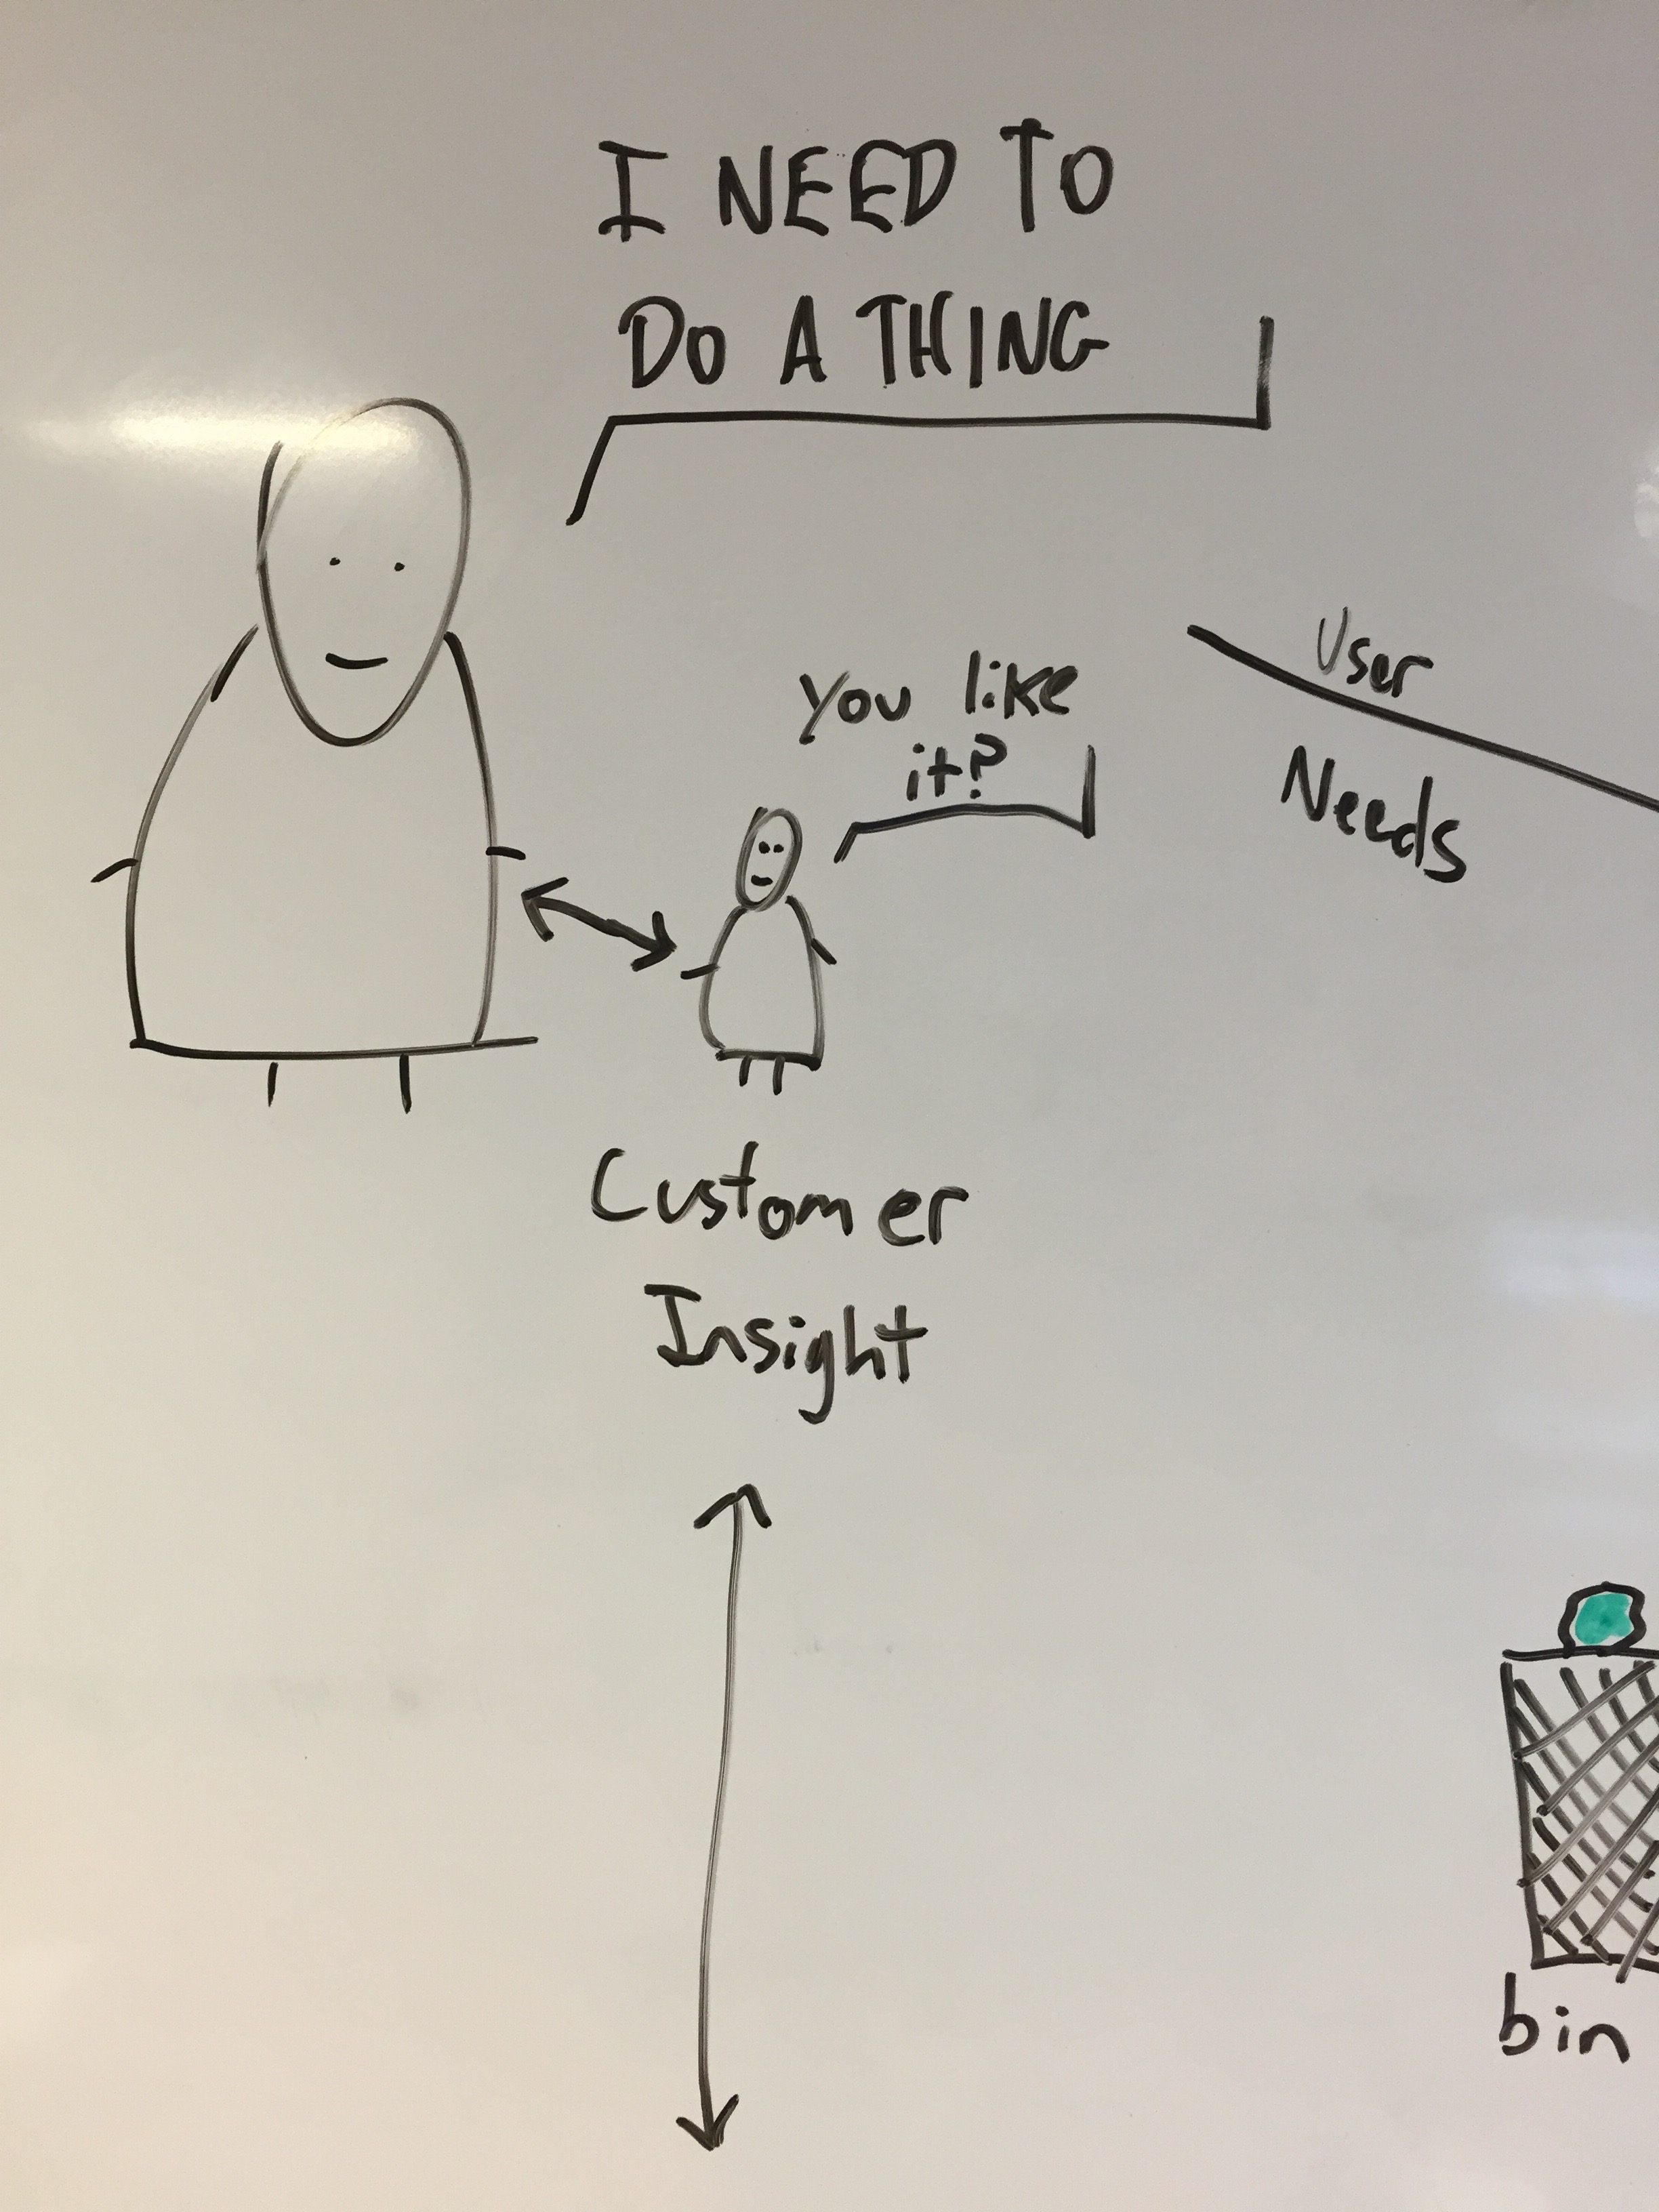 I NEED TO
DO A THING
You like
it?
User
Needs
Customer
Insight
bin